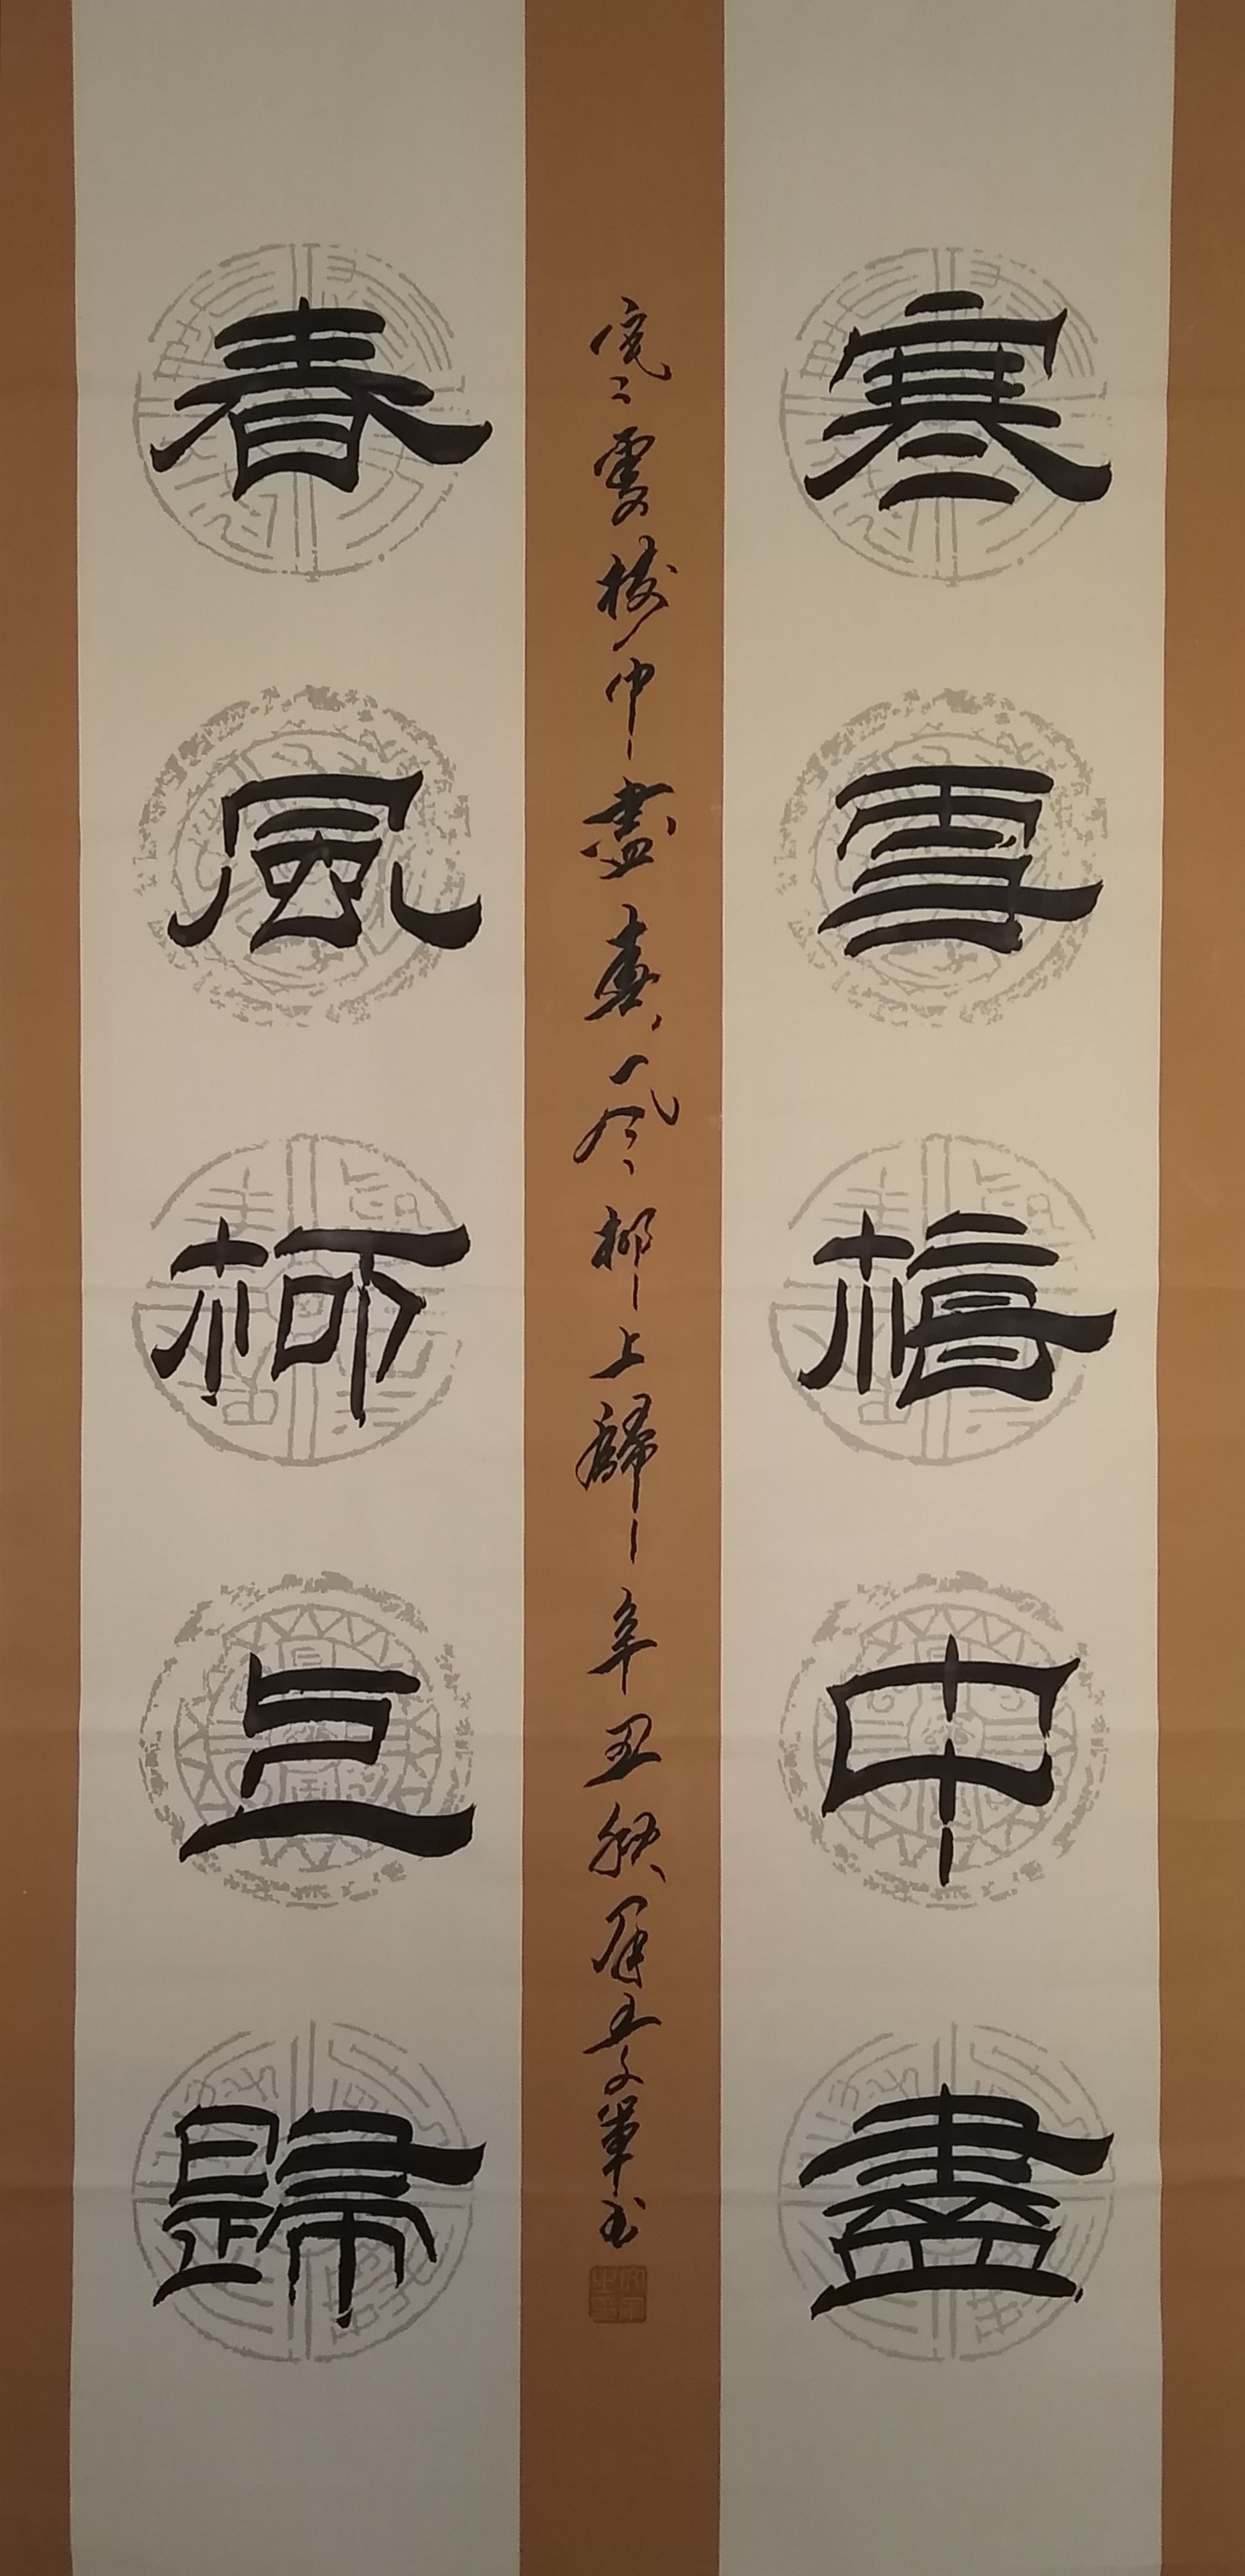 寒雪梅中盡
寒雪梅中盡春風柳上歸辛丑秋
春風柳上歸